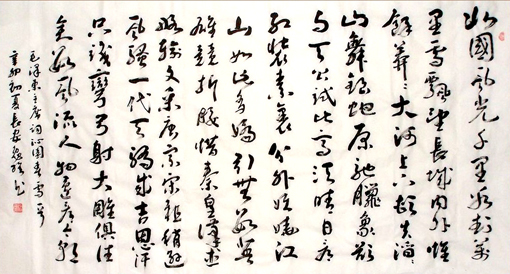 北國風光千里冰封萬
里雪飄望長城內外惟
餘莽々大河上下頓失滔々
山舞銀蛇原馳臘象欲
与天公試比高須晴日看
紅裝素裹分外妖嬈江
山如此多嬌引無數英
雄競折腰惜秦皇漢武
略輸文采唐宗宋祖稍遜
風騷一代天驕成吉思汗
只識彎弓射大雕俱往
矣數風流人物還看今朝
毛澤東主席詞沁園春雪一首
辛卯初夏長安